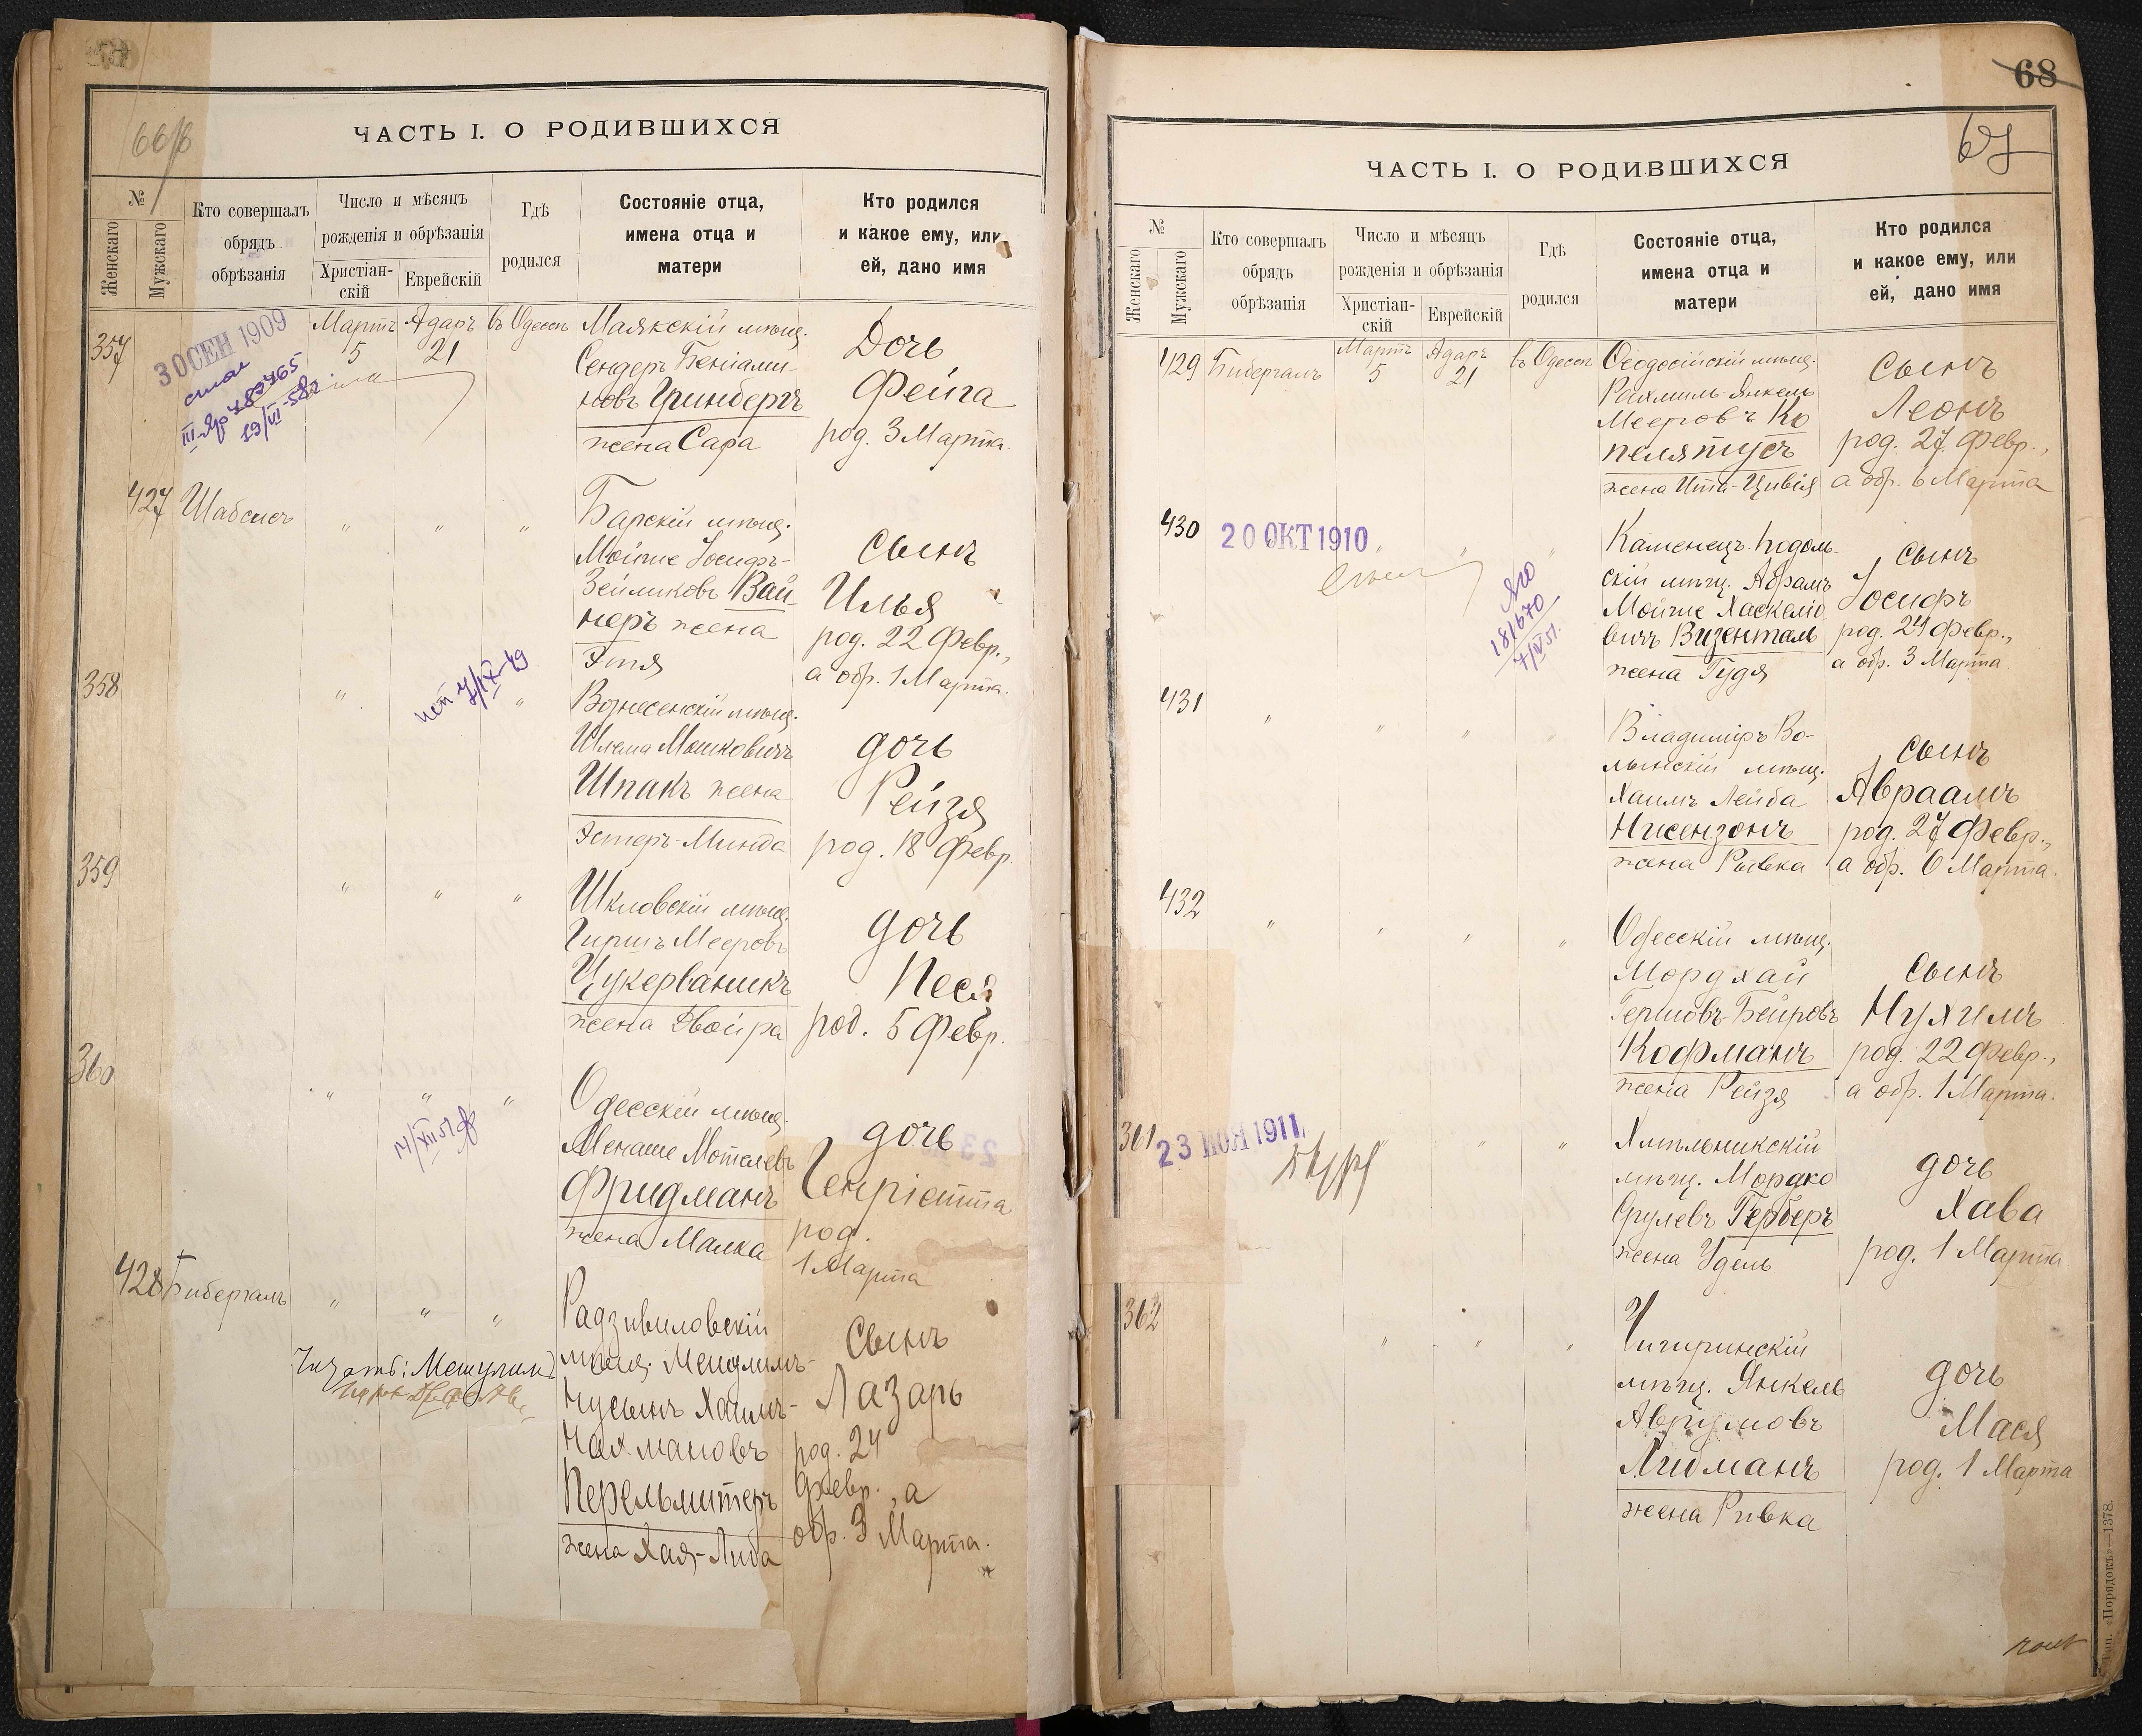 66/б
ЧАСТЬ I. О РОДИВШИХСЯ
№
Женскаго
Мужскаго
Кто совершалъ
обрядъ
обрѣзанія
Число и мѣсяцъ
рожденія и обрѣзанія
Христіан-
скій
Еврейскій
Гдѣ
родился
Состояніе отца,
имена отца и
матери
Кто родился
и какое ему, или
ей, дано имя
357
30 СЕН 1909
19/VI-58г
Мартъ Адаръ въ Одессѣ
5 21
Маякскій мѣщ.
Сендеръ Беніами-
новъ Гринбергъ
жена Сара
Дочь
Фейга
род. 3 Марта.
427 Шабсисъ " " "
Барскій мѣщ.
Мойше Іосифъ-
Зейликовъ Вай-
неръ жена
Этя
сынъ
Илья
род. 22 Февр.,
а обр. 1 Марта.
358 " "
7/IX-49
Вознесенскій мѣщ.
Шлема Мошковичъ
Шпакъ жена
Эстеръ-Минда
дочь
Рейзя
род. 18 Февр.
359 " " "
Шкловскій мѣщ.
Гиршъ Мееровъ
Цукерваникъ
жена Двойра
дочь
Песя
род. 5 Февр.
360 " " "
Одесскій мѣщ.
Менаше Мотелевъ
Фридманъ
жена Малка
дочь
Генріетта
род.
1 Марта
428 Бибергалъ " " "
Читать: Мешулимъ
Радзивиловскій
мѣщ. Мешулимъ-
Нусынъ Хаимъ-
Нахмановъ
Перельмитеръ
жена Хая-Либа
Сынъ
Лазарь
род. 24
Февр., а
обр. 3 Марта.
68
67
ЧАСТЬ I. О РОДИВШИХСЯ
№
Женскаго
Мужскаго
Кто совершалъ
обрядъ
обрѣзанія
Число и мѣсяцъ
рожденія и обрѣзанія
Христіан-
скій
Еврейскій
Гдѣ
родился
Состояніе отца,
имена отца и
матери
Кто родился
и какое ему, или
ей, дано имя
429 Бибергалъ
Мартъ Адаръ въ Одессѣ
5 21
Ѳеодосійскій мѣщ.
Рахмиль-Янкель
Мееровъ Ко
пеляпусъ
жена Ита-Цивія
сынъ
Леонъ
род. 27 Февр.,
а обр. 6 Марта
430 20 ОКТ 1910 " "
181670
Каменецъ-Подоль-
скій мѣщ. Абрамъ
Мойше Хаскеліо
вичъ Визенталь
жена Гудя
сынъ
Іосифъ
род. 24 Февр.,
а обр. 3 Марта
431 " " "
Владиміръ Во-
лынскій мѣщ.
Хаимъ Лейба
Нисензонъ
жена Ривка
сынъ
Авраамъ
род. 27 Февр.,
а обр. 6 Марта.
432 " " " "
Одесскій мѣщ.
Мордхай
Гершовъ-Беировъ
Кофманъ
жена Рейзя
сынъ
Нухимъ
род. 22 Февр.,
а обр. 1 Марта.
361 23 ІЮН 1911 " " "
Хмѣльникскій
мѣщ. Мордко
Срулевъ Герберъ
жена Удель
дочь
Хава
род. 1 Марта
362 " " "
Чигиринскій
мѣщ. Янкель
Аврумовъ
Либманъ
жена Ривка
дочь
Мася
род. 1 Марта
Тип. «Порядокъ»—1378.